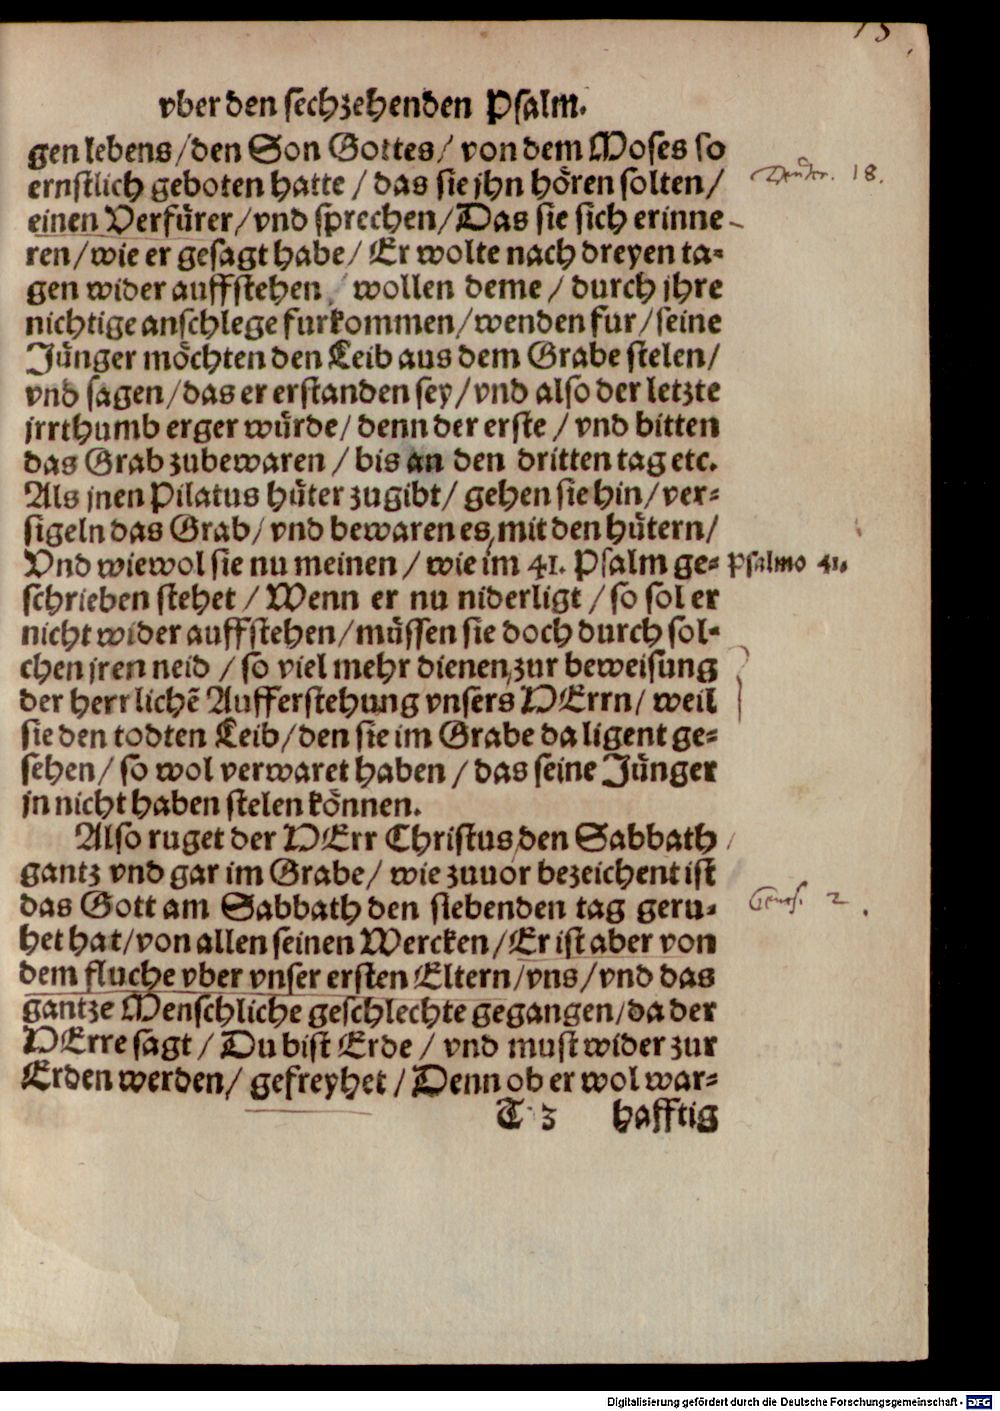 15
vber den sechzehenden Psalm.
gen lebens/den Son Gottes/ von dem Moses so
ernstlich geboten hatte / das sie jhn hören solten/ Deuter. 18.
einen Verfürer/vnd sprechen/Das sie sich erinne-
ren/wie er gesagt habe/ Er wolte nach dreyen ta-
gen wider auffstehen / wollen deme / durch jhre
nichtige anschlege furkommen/wenden fur/seine
Jünger möchten den Leib aus dem Grabe stelen/
vnd sagen/das er erstanden sey/vnd also der letzte
jrrthumb erger würde/ denn der erste / vnd bitten
das Grab zubewaren / bis an den dritten tag etc.
Als jnen Pilatus hüter zugibt/ gehen sie hin/ver-
sigeln das Grab/ vnd bewaren es mit den hütern/
Vnd wiewol sie nu meinen / wie im 41. Psalm ge- Psalmo 41.
schrieben stehet / Wenn er nu niderligt / so sol er
nicht wider auffstehen/müssen sie doch durch sol-
chen jren neid / so viel mehr dienen zur beweisung
der herrlichē Aufferstehung vnsers HErrn/ weil
sie den todten Leib/den sie im Grabe da ligent ge-
sehen/ so wol verwaret haben / das seine Jünger
jn nicht haben stelen können.
Also ruget der HErr Christus den Sabbath
gantz vnd gar im Grabe/ wie zuuor bezeichent ist
das Gott am Sabbath den siebenden tag geru- Genes. 2.
het hat/von allen seinen Wercken/Er ist aber von
dem fluche vber vnser ersten Eltern/vns/vnd das
gantze Menschliche geschlechte gegangen/da der
HErre sagt / Du bist Erde / vnd must wider zur
Erden werden/ gefreyhet / Denn ob er wol war-
T 3 hafftig
Digitalisierung gefördert durch die Deutsche Forschungsgemeinschaft - DFG